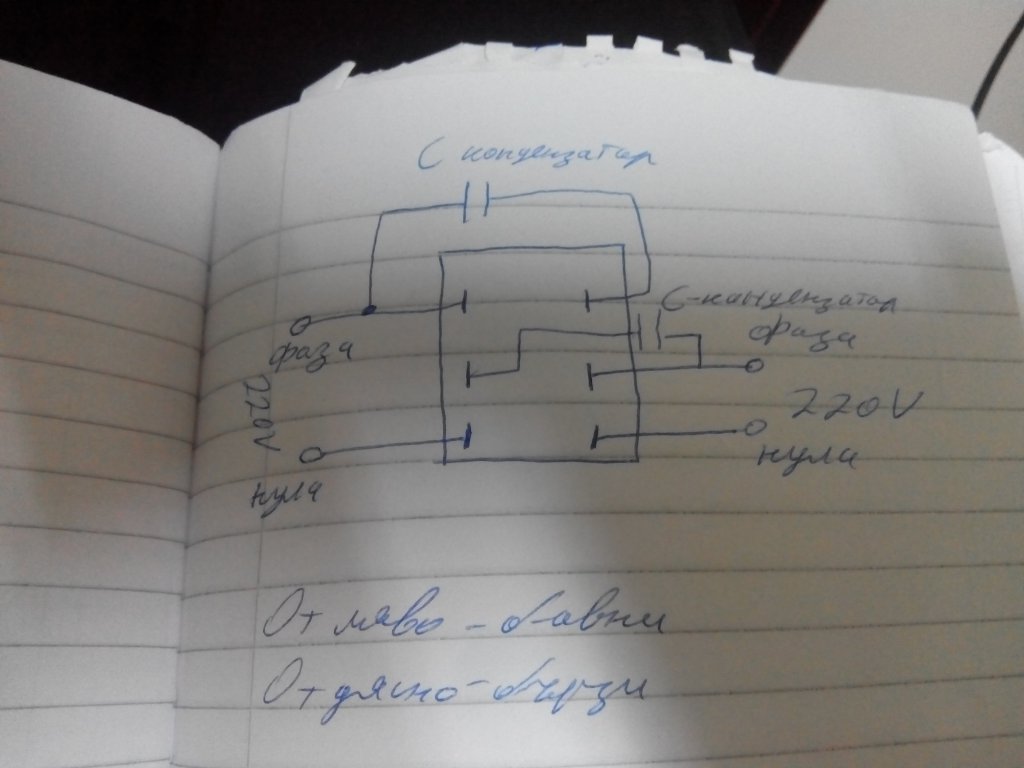 C кондензатор
C-кондензатор
фаза
фаза
220V
220V
нула
нула
От ляво - бавни
От дясно - бързи